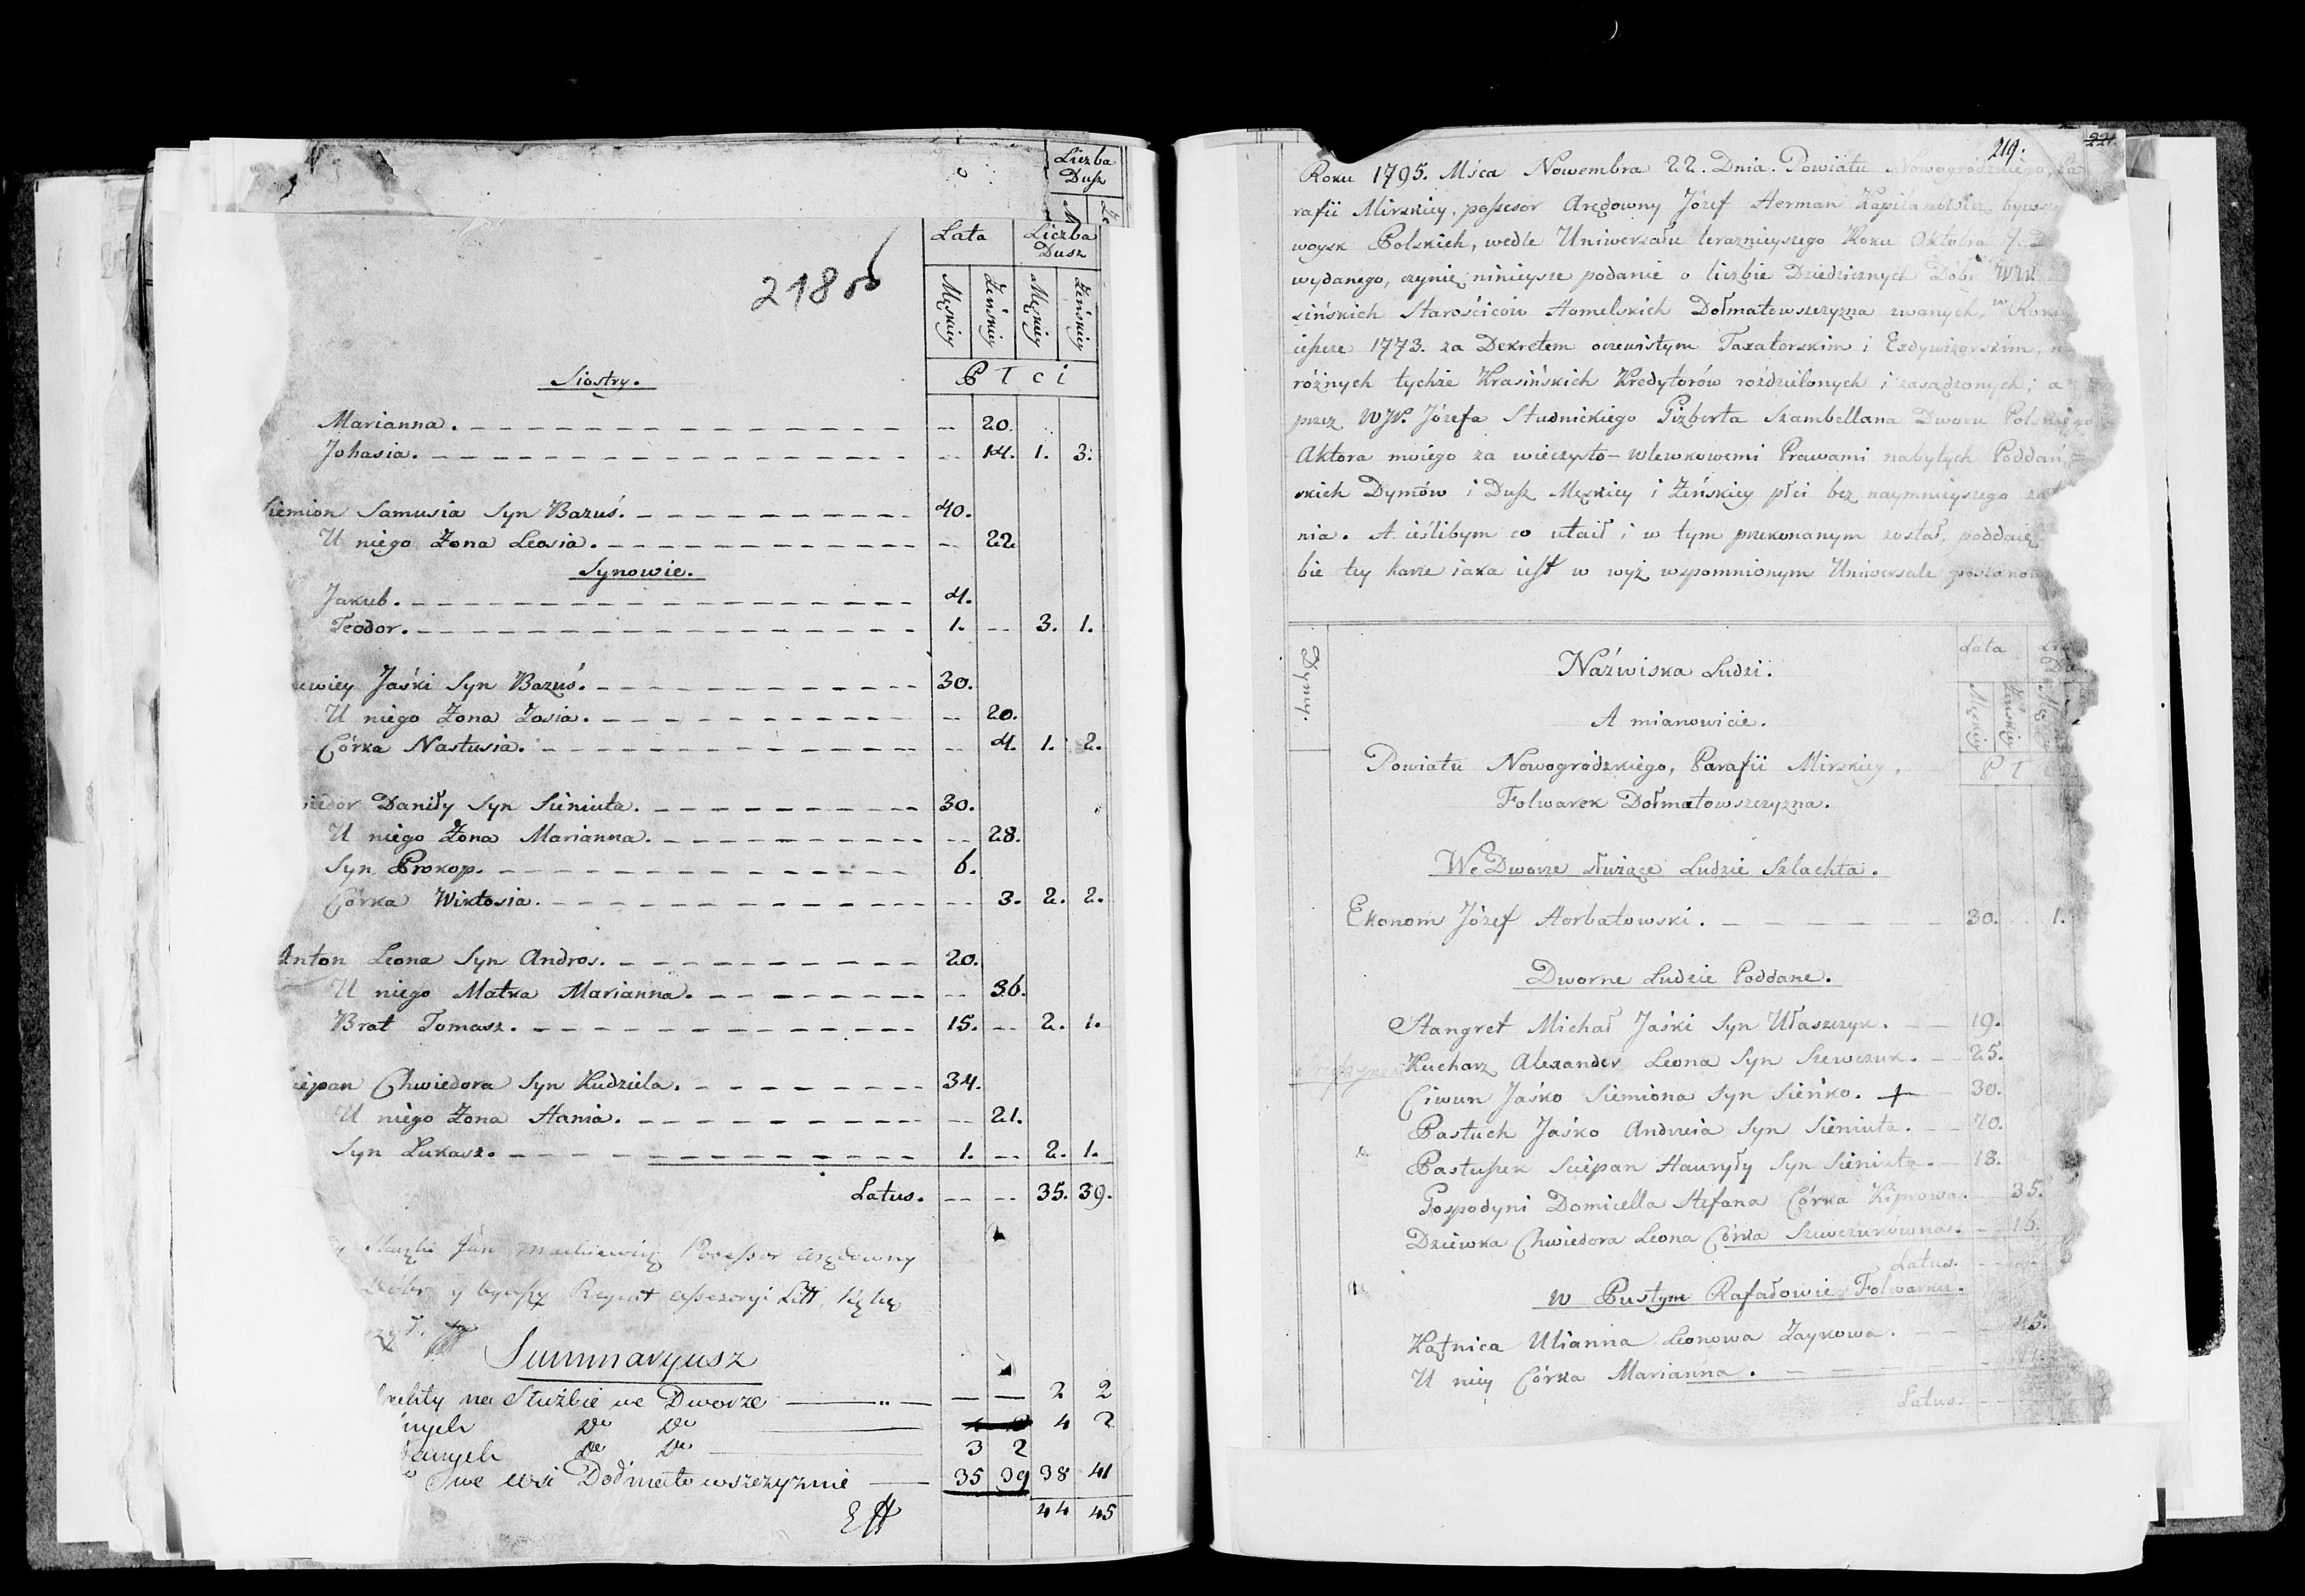 Liczba
Dusz
218
Lata Liczba
Dusz
Męskiey Żeńskiey Męskiey Żeńskiey
Płci
Siostry.
Marianna. -- 20.
Johasia. -- 14. 1. 3.
Siemion Samusia Syn Bazuś. 40.
U niego Żona Leosia. -- 22
Synowie.
Jakub. 4.
Teodor. 1. -- 3. 1.
Jaśki Syn Bazuś. 30.
U niego Żona Zosia. -- 20.
Córka Nastusia. -- 4. 1. 2.
Daniły Syn Sieniuta. 30.
U niego Żona Marianna. -- 28.
Syn Prokop. 6.
Córka Wiktosia. -- 3. 2. 2.
Anton Leona Syn Andros. 20.
U niego Matka Marianna. -- 36.
Brat Tomasz. 15. -- 2. 1.
Chwiedora Syn Kudziela. 34.
U niego Żona Hania. -- 21.
Syn Łukasz. 1. -- 2. 1.
Latus. -- -- 35. 39.
Jan Mackiewicz Possessor arędowny
Dóbr y bywszy Regent Assessoryi Litt.
Summaryusz
na Służbie we Dworze — — 2 2
Do Do 4 2
Do Do 3 2
we wsi Dołmatowszczyznie 35 39 38 41
44 45
219. 221.
Roku 1795. Mśca Nowembra 22. Dnia. Powiatu Nowogródzkiego, Pa-
rafii Mirskiey, possesor Arędowny Józef Herman Kapitanowicz bywszy
woysk Polskich, wedle Uniwersału teraznieyszego Roku Oktobra 7. D
wydanego, czynię ninieysze podanie o liczbie Dziedzicznych Dóbr WW
sińskich Starościców Homelskich Dołmatowszczyzna zwanych, w Roku
ieszcze 1773. za Dekretem oczewistym Taxatorskim i Exdywizorskim, n
różnych tychże Krasińskich Kredytorów rozdzielonych i zasądzonych; a
przez WJP. Józefa Studnickiego Gizberta Szambellana Dworu Polskiego
Aktora moiego za wieczysto-wlewkowemi Prawami nabytych Poddań-
skich Dymów i Dusz Męskiey i Żeńskiey płci bez naymnieyszego
nia. A ieślibym co utaił i w tym przekonanym został, poddaię
bie tey karze iaka iest w wyż wspomnionym Uniwersale postanow
Dymy.
Nazwiska Ludzi.
Lata
Męskiey Żeńskiey
A mianowicie.
Powiatu Nowogródzkiego, Parafii Mirskiey,
Folwarek Dołmatowszczyzna.
We Dworze służące Ludzie Szlachta.
Ekonom Józef Horbatowski. 30. 1.
Dworne Ludzie Poddane.
Stangret Michał Jaśki Syn Ułaszczyk. 19.
Kucharz Alexander Leona Syn Szewczuk. 25.
Ciwun Jaśko Siemiona Syn Sieńko. + 30.
Pastuch Jaśko Andrzeia Syn Sieniuta. 70.
Pastuszek Sciepan Hauryły Syn Sieniuta. 18.
Gospodyni Domicella Stefana Córka Kiprowa. 35.
Dziewka Chwiedora Leona Córka Szewczukówna. 16.
Latus.
w Pustym Rafałowie Folwarku.
Kątnica Ulianna Leonowa Zaykowa. 45.
U niey Córka Marianna.
Latus.